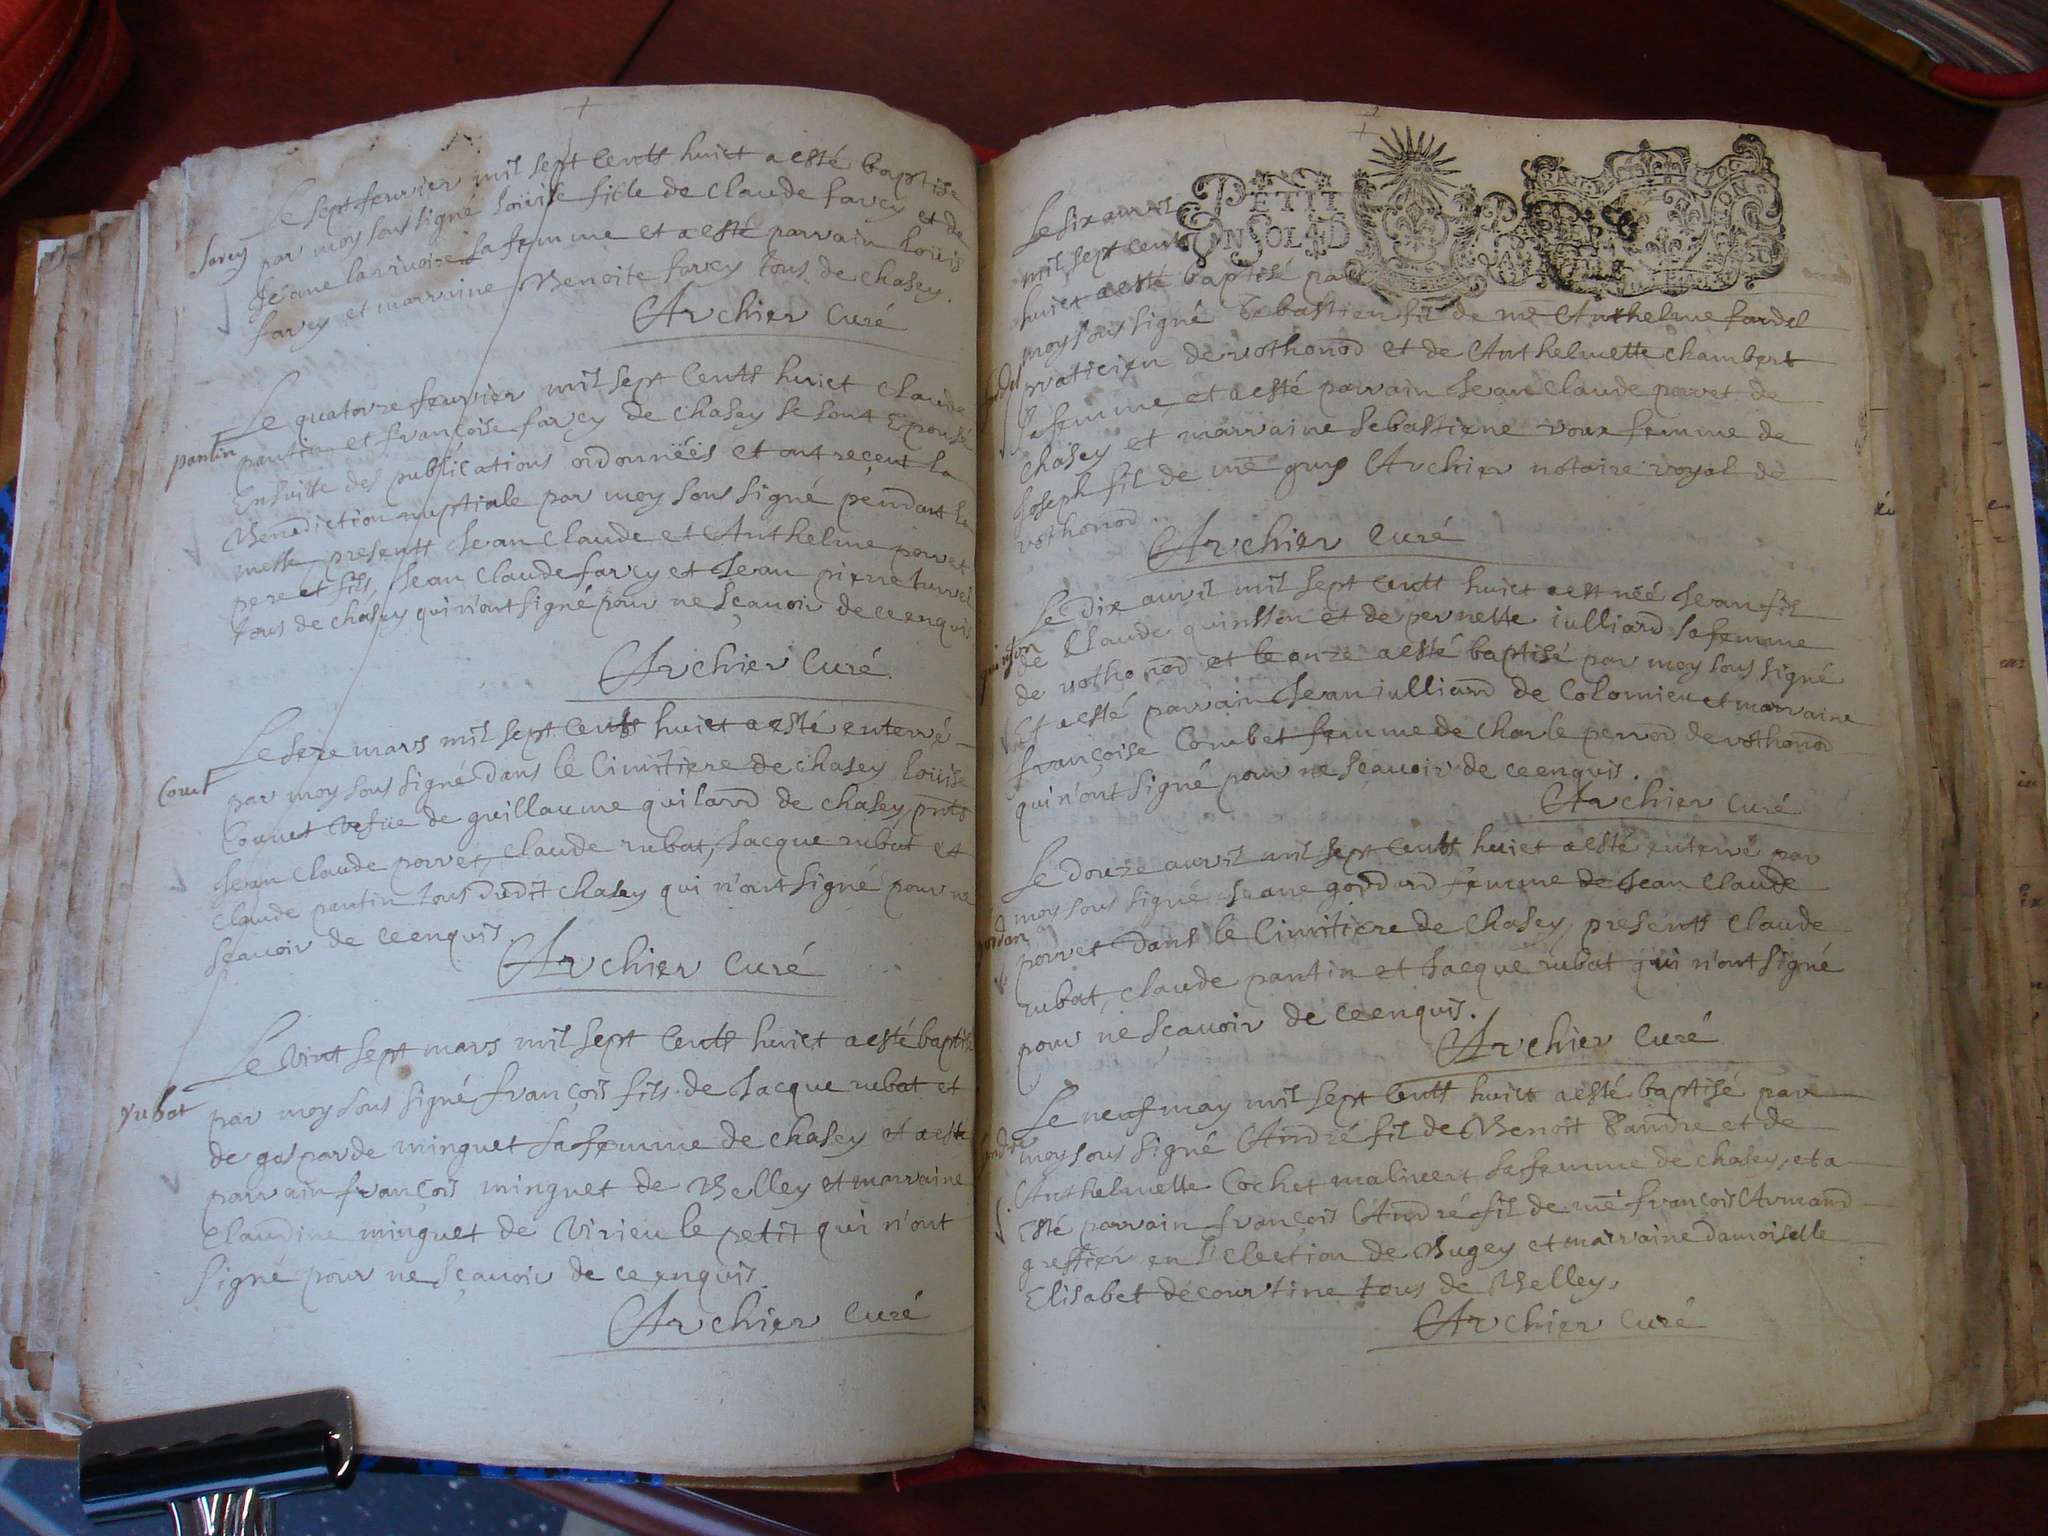 Le sept feuvrier mil sept Cents huict a esté baptisé
farcy
par moy sous signé Loüise fille de Claude farcy et de
Jeane larivoire sa femme et a esté parrain Loüis
farcy et marraine Benoite farcy tous de Chasey.
Archier Curé
Le quatorze feuvrier mil sept Cents huict Claude
pantin
pantin et françoise farcy de Chasey se sont Epousé
Ensuitte des publications ordonnéés et ont reçeut la
Benediction nuptiale par moy sous signé pendant la
messe, presentt Jean Claude et Anthelme porret
pere et fils, Jean Claude farcy et Jean pierre turrel
tous de chasey qui n'ont signé pour ne sçauoir de ce enquis
Archier Curé.
Le seze mars mil sept Cents huict a esté enterré
par moy sous signé dans le Cimitiere de chasey Loüise
Couuet Vefüe de guillaume quilard de chasey, pnts
Jean Claude porret, Claude rubat, Jacque rubat et
Claude pantin tous dudit Chasey qui n'ont signé pour ne
sçauoir de ce enquis
Archier Curé
Le Vint sept mars mil sept Cents huict a esté baptisé
rubat
par moy sous signé françois fils de Jacque rubat et
de gasparde minguet sa femme de chasey et a esté
parrain françois minguet de Belley et marraine
Claudine minguet de Virieu le petit qui n'ont
signé pour ne sçauoir de ce enquis.
Archier Curé
PETIT
EN SOL 4 D
Le six auril
mil sept cent
huict a esté baptisé par
moy sous signé Sebastien fil de me Anthelme fardel
praticien de rothonod et de Anthelmette Chambert
sa femme, et a esté parrain Jean Claude porret de
Chasey et marraine Sebastiene roux femme de
Joseph fil de me guy Archier notaire royal de
rothonod.
Archier Curé
Le dix auril mil sept Cents huict est néé Jean fil
quinson
de Claude quinsson et de pernette iulliard sa femme
de rothonod et le onze a esté baptisé par moy sous signé
Et a esté parrain Jean iulliard de Colomieu et marraine
françoise Combet femme de Charle perrod de rothonod
qui n'ont signé pour ne sçauoir de ce enquis.
Archier Curé
Le douze auril mil sept Cents huict a esté enterré par
moy sous signé Jeane goddard femme de Jean Claude
porret dans le Cimitiere de Chasey, presentt Claude
rubat, Claude pantin et Jacque rubat qui n'ont signé
pour ne sçauoir de ce enquis.
Archier Curé
Le neuf may mil sept Cents huict a esté baptisé par
moy sous signé André fil de Benoit Jandre et de
Anthelmette Cochet malivert sa femme de chasey, et a
Esté parrain françois André fil de me françois Armand
greffier en l'Election de Bugey et marraine damoiselle
Elisabet décourtine tous de Belley.
Archier Curé